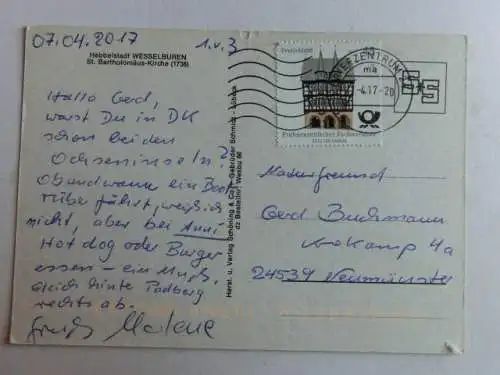 07.04.2017
1.v.3
Hebbelstadt WESSELBUREN
St. Bartholomäus-Kirche (1738)
Hallo Gerd,
warst Du in DK
schon bei den
Ochseninseln?
Ob und wann ein Boot
rüber fährt, weiß ich
nicht, aber bei Annie
Hot dog oder Burger
essen – ein Muß.
Gleich hinter Padborg
rechts ab.
Gruß Marlene
Horst. u. Verlag Schöning & Co + Gebrüder Schmidt - Lübeck
Deutschland
BRIEFZENTRUM
-4.17-20
Naturfreund
Gerd Buchmann
4a
24534 Neumünster